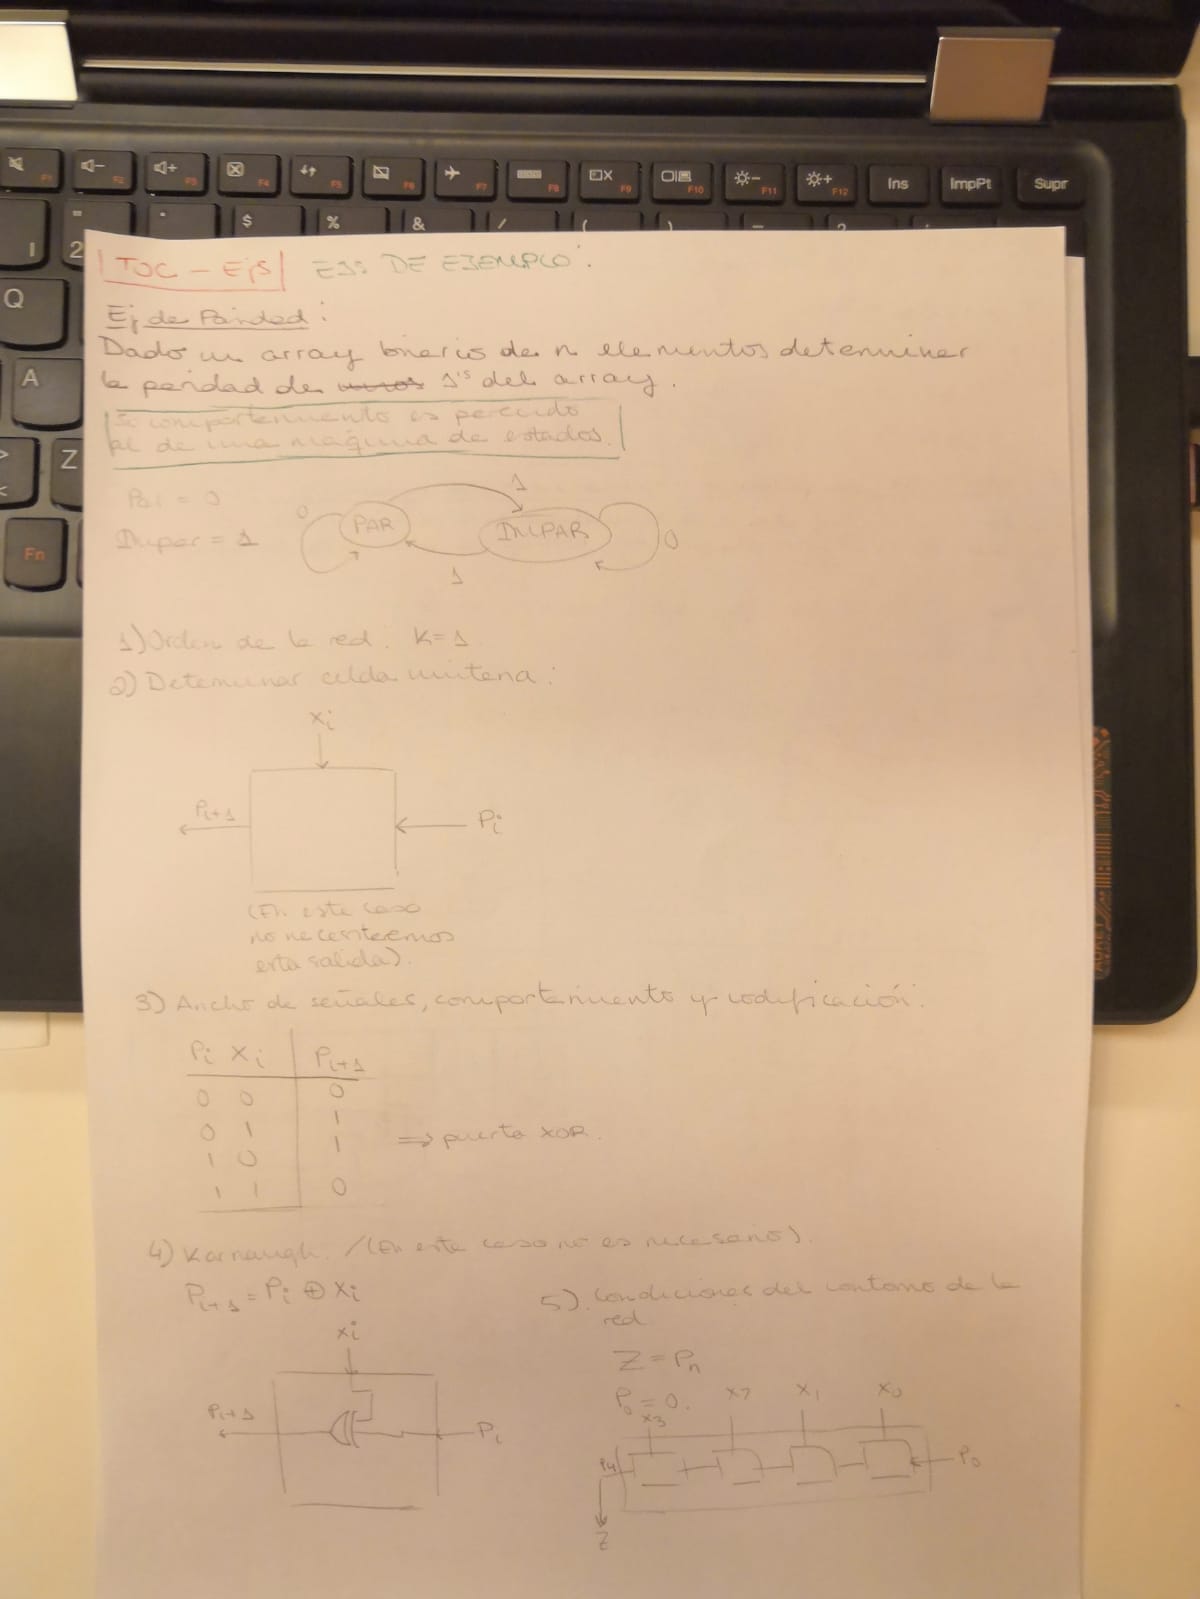 F1 F2 F3 F4 F5 F6 F7 F8 F9 F10 F11 F12 Ins ImpPt Supr
" · $ % & / ( )
2
Q
A
Z
Fn
TOC - Ejs EJS DE EJEMPLO:
Ej de Paridad:
Dado un array binario de n elementos determinar
la paridad de unos 1's del array.
Su comportamiento es parecido
al de una máquina de estados.
Par = 0
Impar = 1
0 PAR 1 IMPAR 0
1
1) Orden de la red: K=1
2) Determinar celda unitaria:
xi
Pi+1 Pi
(En este caso
no necesitaremos
esta salida).
3) Ancho de señales, comportamiento y codificación:
Pi Xi Pi+1
0 0 0
0 1 1
1 0 1 ⇒ puerta XOR.
1 1 0
4) Karnaugh. / (En este caso no es necesario).
Pi+1 = Pi ⊕ Xi
5). Condiciones del contorno de la
red
xi
Pi+1 Pi
Z = Pn
P0 = 0.
x3 x2 x1 x0
P4 P0
Z